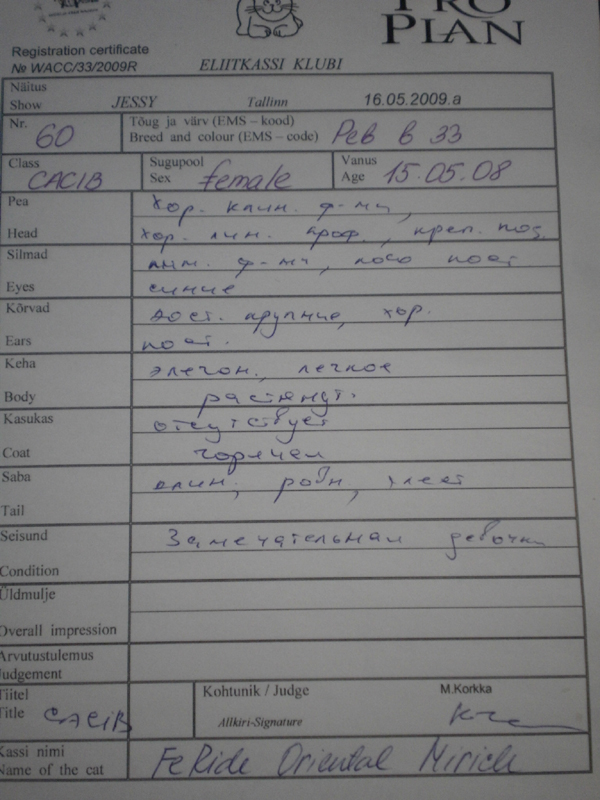 PRO
PLAN
Registration certificate
№ WACC/33/2009R ELIITKASSI KLUBI
Näitus
Show JESSY Tallinn 16.05.2009.a
Nr. 60 Tõug ja värv (EMS – kood)
Breed and colour (EMS – code) Peb b 33
Class CACIB Sugupool
Sex female Vanus
Age 15.05.08
Pea хор. клин. ф-мы,
Head хор. лин. проф., креп. подб.
Silmad мин. ф-мы, косо пост
Eyes синие
Kõrvad дост. крупные, хор.
Ears пост.
Keha элеган., легкое
Body растянут.
Kasukas отсутствует
Coat горячая
Saba длин, ровн, хлест
Tail
Seisund Замечательная девочка
Condition
Üldmulje
Overall impression
Arvutustulemus
Judgement
Tiitel
Title CACIB Kohtunik / Judge M.Korkka
Allkiri-Signature
Kassi nimi
Name of the cat FeRide Oriental Mirich